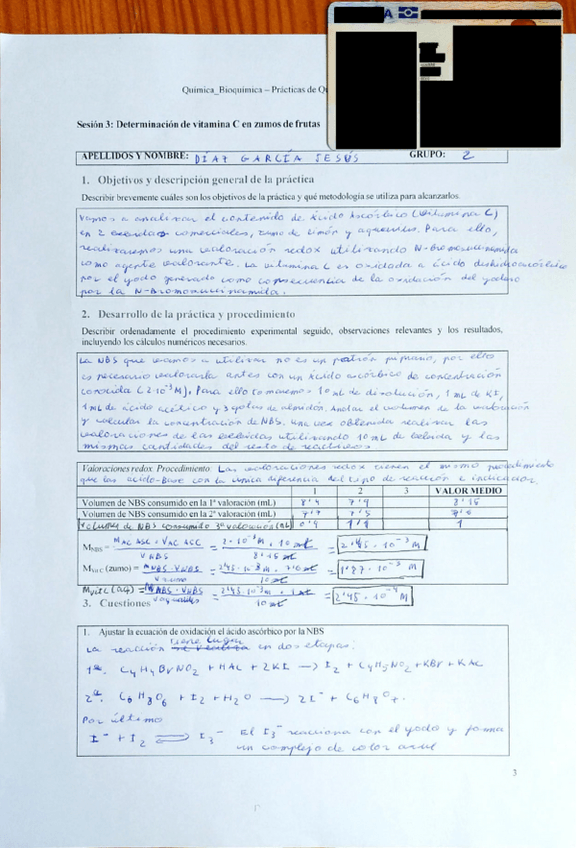 A
Química_Bioquímica – Prácticas de Qu
Sesión 3: Determinación de vitamina C en zumos de frutas
APELLIDOS Y NOMBRE: DÍAZ GARCÍA JESÚS GRUPO: 2
1. Objetivos y descripción general de la práctica
Describir brevemente cuáles son los objetivos de la práctica y qué metodología se utiliza para alcanzarlos.
Vamos a analizar el contenido de Ácido Ascórbico (Vitamina C)
en 2 bebidas comerciales, zumo de limón y aquarius. Para ello,
realizaremos una valoración redox utilizando N-Bromosuccinamida
como agente valorante. La vitamina C es oxidada a ácido deshidroascórbico
por el yodo generado como consecuencia de la oxidación del yoduro
por la N-Bromosuccinamida.
2. Desarrollo de la práctica y procedimiento
Describir ordenadamente el procedimiento experimental seguido, observaciones relevantes y los resultados,
incluyendo los cálculos numéricos necesarios.
La NBS que vamos a utilizar no es un patrón primario, por ello
es necesario valorarla antes con un ácido ascórbico de concentración
conocida (2·10⁻³M). Para ello tomaremos 10 mL de disolución, 1 mL de KI,
1 mL de ácido acético y 3 gotas de almidón. Anotar el volumen de la valoración
y calcular la concentración de NBS. Una vez obtenida realizar las
valoraciones de las bebidas utilizando 10 mL de bebida y las
mismas cantidades del resto de reactivos
Valoraciones redox. Procedimiento. Las valoraciones redox tienen el mismo procedimiento
que las ácido-Base con la única diferencia del tipo de reacción e indicador.
1 2 3 VALOR MEDIO
Volumen de NBS consumido en la 1ª valoración (mL) 8'4 7'9 8'15
Volumen de NBS consumido en la 2ª valoración (mL) 7'7 7'5 7'6
Volumen de NBS consumido 3ª valoración (mL) 0'9 1'1 1
M NBS = M AC ASC · V AC ASC / V NBS = 2·10⁻³ M · 10 mL / 8'15 mL = 2'45·10⁻³ M
M vit.C (zumo) = M NBS · V NBS / V zumo = 2'45·10⁻³ M · 7'6 mL / 10 mL = 1'87·10⁻³ M
M vit C (aq) = M NBS · V NBS / V aquarius = 2'45·10⁻³ M · 1 mL / 10 mL = 2'45·10⁻⁴ M
3. Cuestiones
1. Ajustar la ecuación de oxidación el ácido ascórbico por la NBS
La reacción tiene lugar en dos etapas:
1ª. C₄H₄BrNO₂ + HAC + 2KI → I₂ + C₄H₅NO₂ + KBr + KAC
2ª. C₆H₈O₆ + I₂ + H₂O → 2I⁻ + C₆H₈O₇.
Por último
I⁻ + I₂ ⇌ I₃⁻ El I₃⁻ reacciona con el yodo y forma
un complejo de color azul
3